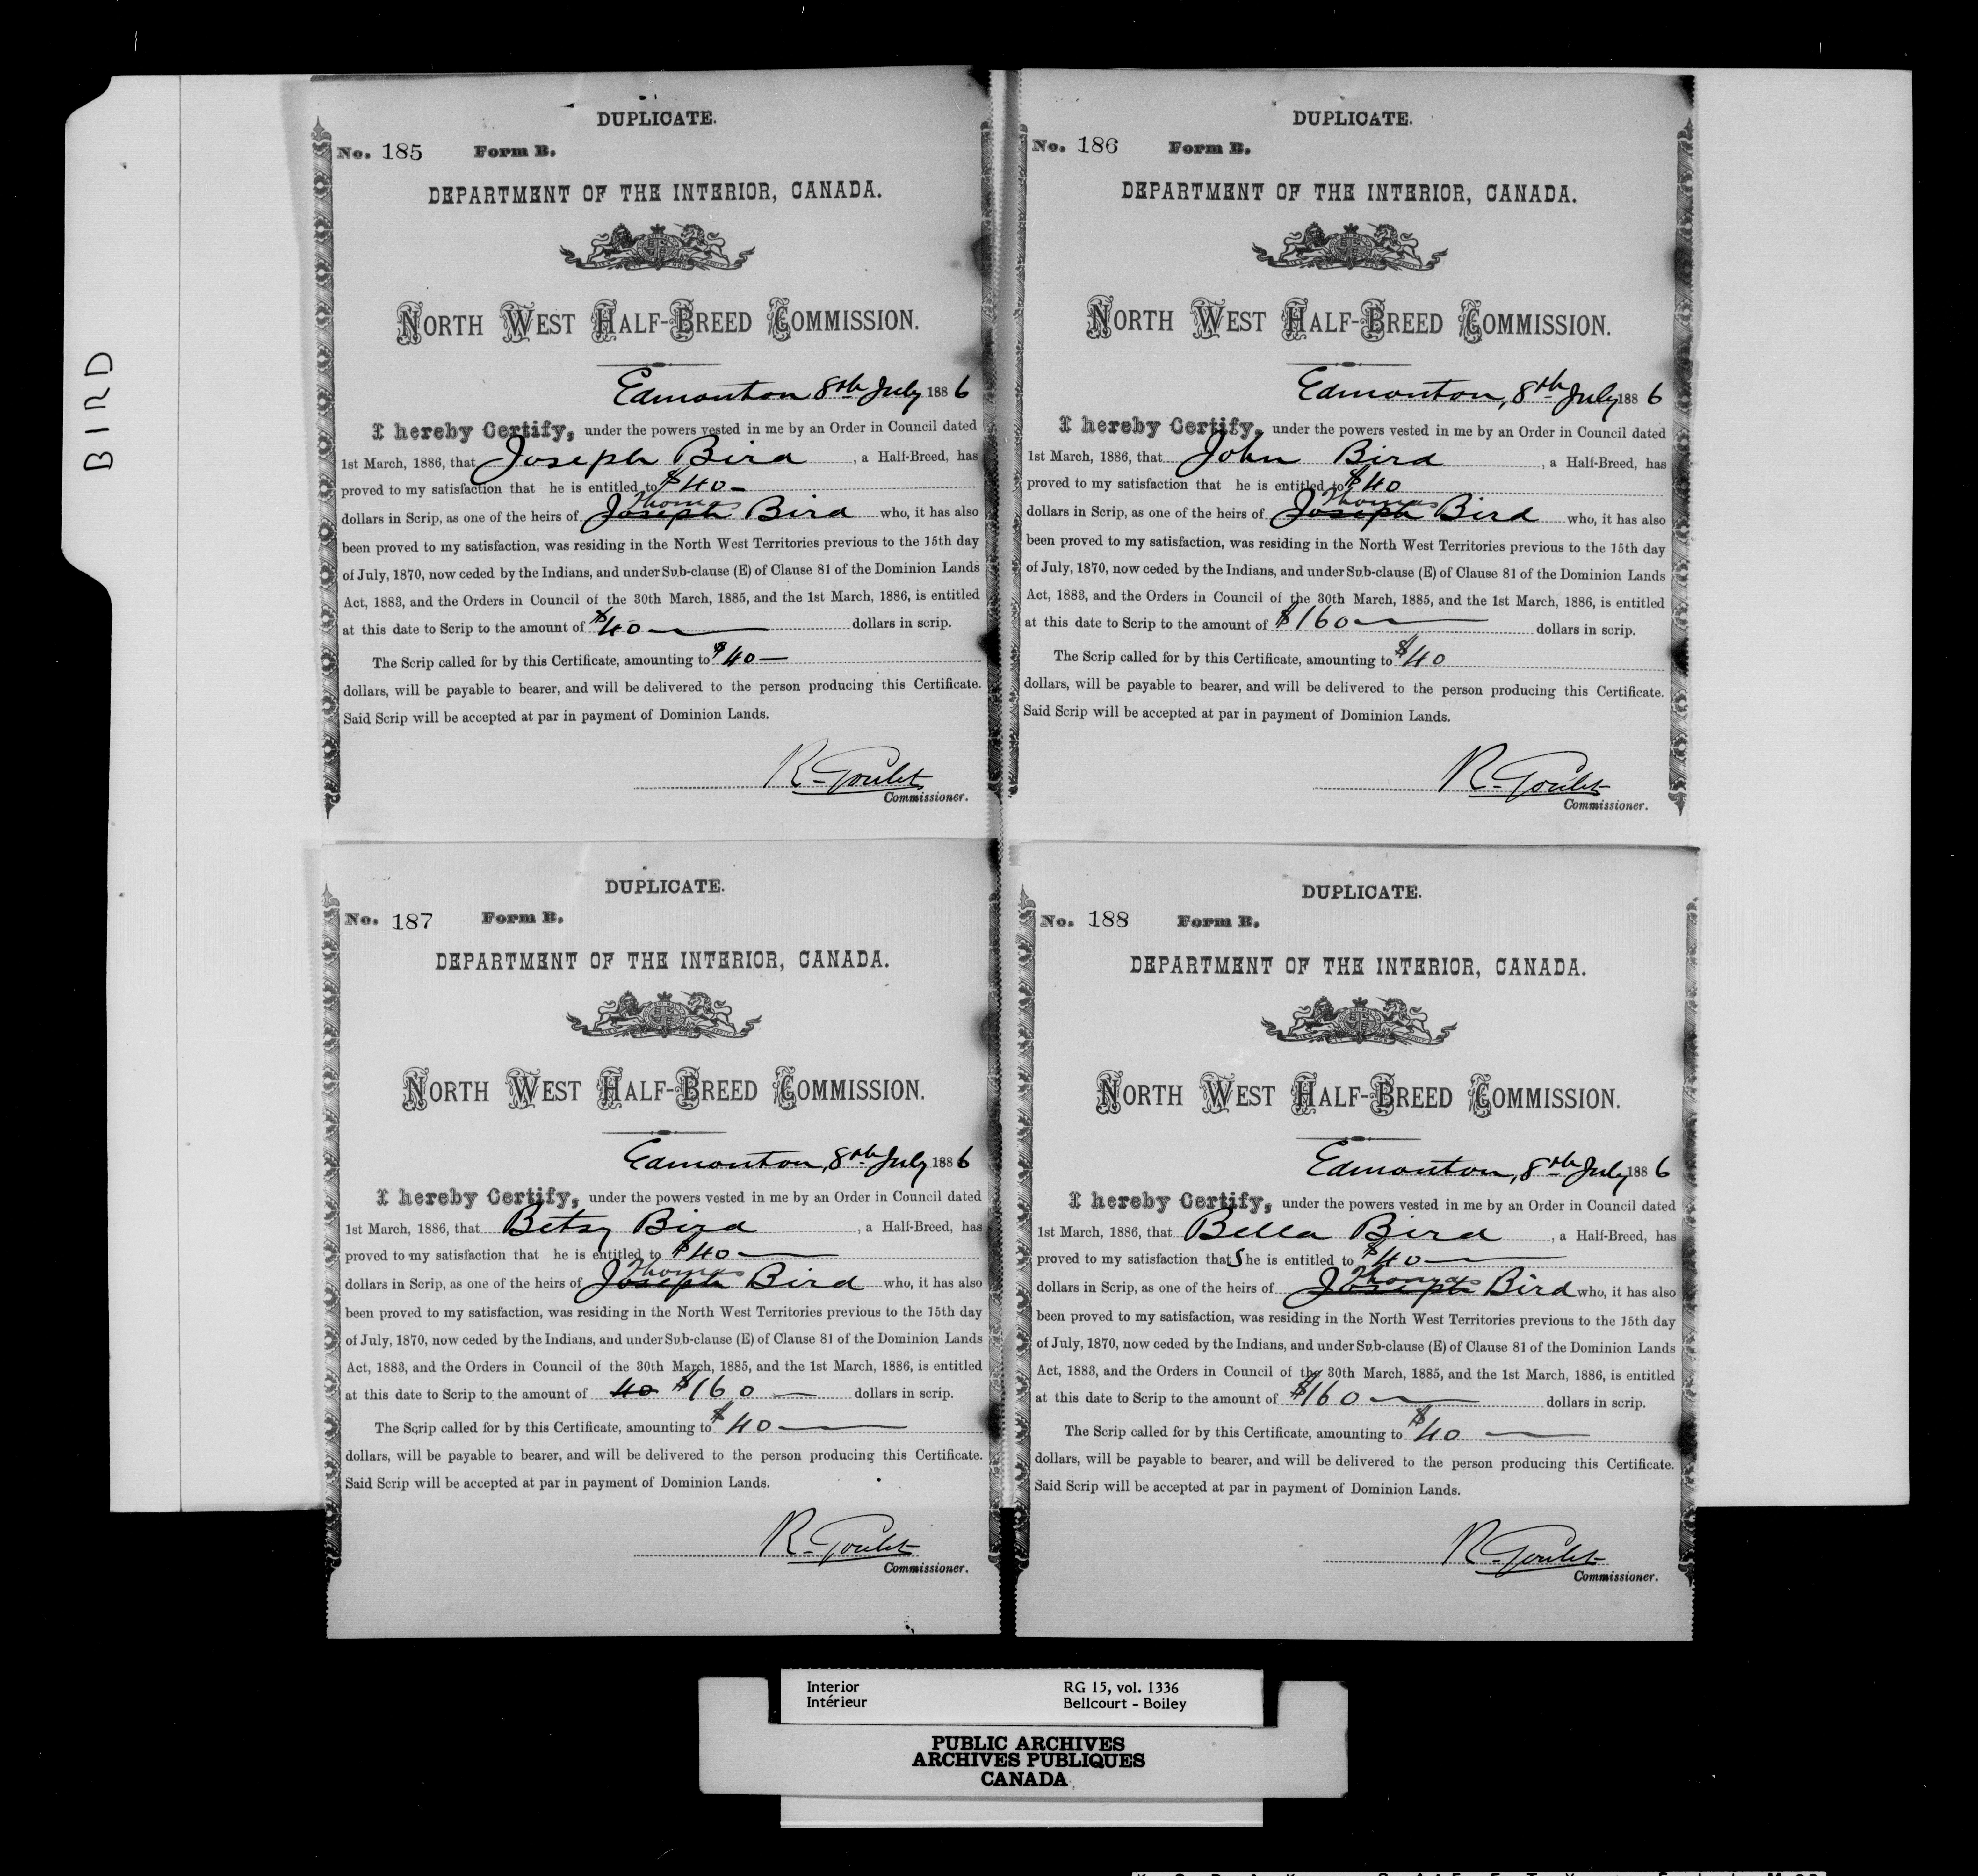 BIRD
DUPLICATE.
No. 185 Form B.
DEPARTMENT OF THE INTERIOR, CANADA.
NORTH WEST HALF-BREED COMMISSION.
Edmonton 8th July 1886
I hereby Certify, under the powers vested in me by an Order in Council dated
1st March, 1886, that Joseph Bird, a Half-Breed, has
proved to my satisfaction that he is entitled to $40-
Thomas
dollars in Scrip, as one of the heirs of Joseph Bird who, it has also
been proved to my satisfaction, was residing in the North West Territories previous to the 15th day
of July, 1870, now ceded by the Indians, and under Sub-clause (E) of Clause 81 of the Dominion Lands
Act, 1883, and the Orders in Council of the 30th March, 1885, and the 1st March, 1886, is entitled
at this date to Scrip to the amount of $40 dollars in scrip.
The Scrip called for by this Certificate, amounting to $40—
dollars, will be payable to bearer, and will be delivered to the person producing this Certificate.
Said Scrip will be accepted at par in payment of Dominion Lands.
R. Goulet
Commissioner.
DUPLICATE.
No. 186 Form B.
DEPARTMENT OF THE INTERIOR, CANADA.
NORTH WEST HALF-BREED COMMISSION.
Edmonton, 8th July 1886
I hereby Certify, under the powers vested in me by an Order in Council dated
1st March, 1886, that John Bird, a Half-Breed, has
proved to my satisfaction that he is entitled to $40
Thomas
dollars in Scrip, as one of the heirs of Joseph Bird who, it has also
been proved to my satisfaction, was residing in the North West Territories previous to the 15th day
of July, 1870, now ceded by the Indians, and under Sub-clause (E) of Clause 81 of the Dominion Lands
Act, 1883, and the Orders in Council of the 30th March, 1885, and the 1st March, 1886, is entitled
at this date to Scrip to the amount of $160 dollars in scrip.
The Scrip called for by this Certificate, amounting to $40
dollars, will be payable to bearer, and will be delivered to the person producing this Certificate.
Said Scrip will be accepted at par in payment of Dominion Lands.
R. Goulet
Commissioner.
DUPLICATE.
No. 187 Form B.
DEPARTMENT OF THE INTERIOR, CANADA.
NORTH WEST HALF-BREED COMMISSION.
Edmonton, 8th July 1886
I hereby Certify, under the powers vested in me by an Order in Council dated
1st March, 1886, that Betsy Bird, a Half-Breed, has
proved to my satisfaction that he is entitled to $40
Thomas
dollars in Scrip, as one of the heirs of Joseph Bird who, it has also
been proved to my satisfaction, was residing in the North West Territories previous to the 15th day
of July, 1870, now ceded by the Indians, and under Sub-clause (E) of Clause 81 of the Dominion Lands
Act, 1883, and the Orders in Council of the 30th March, 1885, and the 1st March, 1886, is entitled
at this date to Scrip to the amount of 40 $160 dollars in scrip.
The Scrip called for by this Certificate, amounting to $40
dollars, will be payable to bearer, and will be delivered to the person producing this Certificate.
Said Scrip will be accepted at par in payment of Dominion Lands.
R. Goulet
Commissioner.
DUPLICATE.
No. 188 Form B.
DEPARTMENT OF THE INTERIOR, CANADA.
NORTH WEST HALF-BREED COMMISSION.
Edmonton, 8th July 1886
I hereby Certify, under the powers vested in me by an Order in Council dated
1st March, 1886, that Bella Bird, a Half-Breed, has
proved to my satisfaction that She is entitled to $40
Thomas
dollars in Scrip, as one of the heirs of Joseph Bird who, it has also
been proved to my satisfaction, was residing in the North West Territories previous to the 15th day
of July, 1870, now ceded by the Indians, and under Sub-clause (E) of Clause 81 of the Dominion Lands
Act, 1883, and the Orders in Council of the 30th March, 1885, and the 1st March, 1886, is entitled
at this date to Scrip to the amount of $160 dollars in scrip.
The Scrip called for by this Certificate, amounting to $40
dollars, will be payable to bearer, and will be delivered to the person producing this Certificate.
Said Scrip will be accepted at par in payment of Dominion Lands.
R. Goulet
Commissioner.
Interior RG 15, vol. 1336
Intérieur Bellcourt - Boiley
PUBLIC ARCHIVES
ARCHIVES PUBLIQUES
CANADA